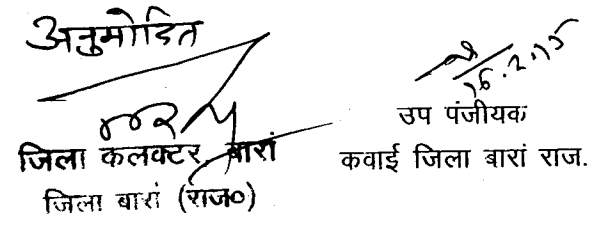 अनुमोदित
जिला कलक्टर, बारां
जिला बारां (राज०)
16.2.15
उप पंजीयक
कवाई जिला बारां राज.